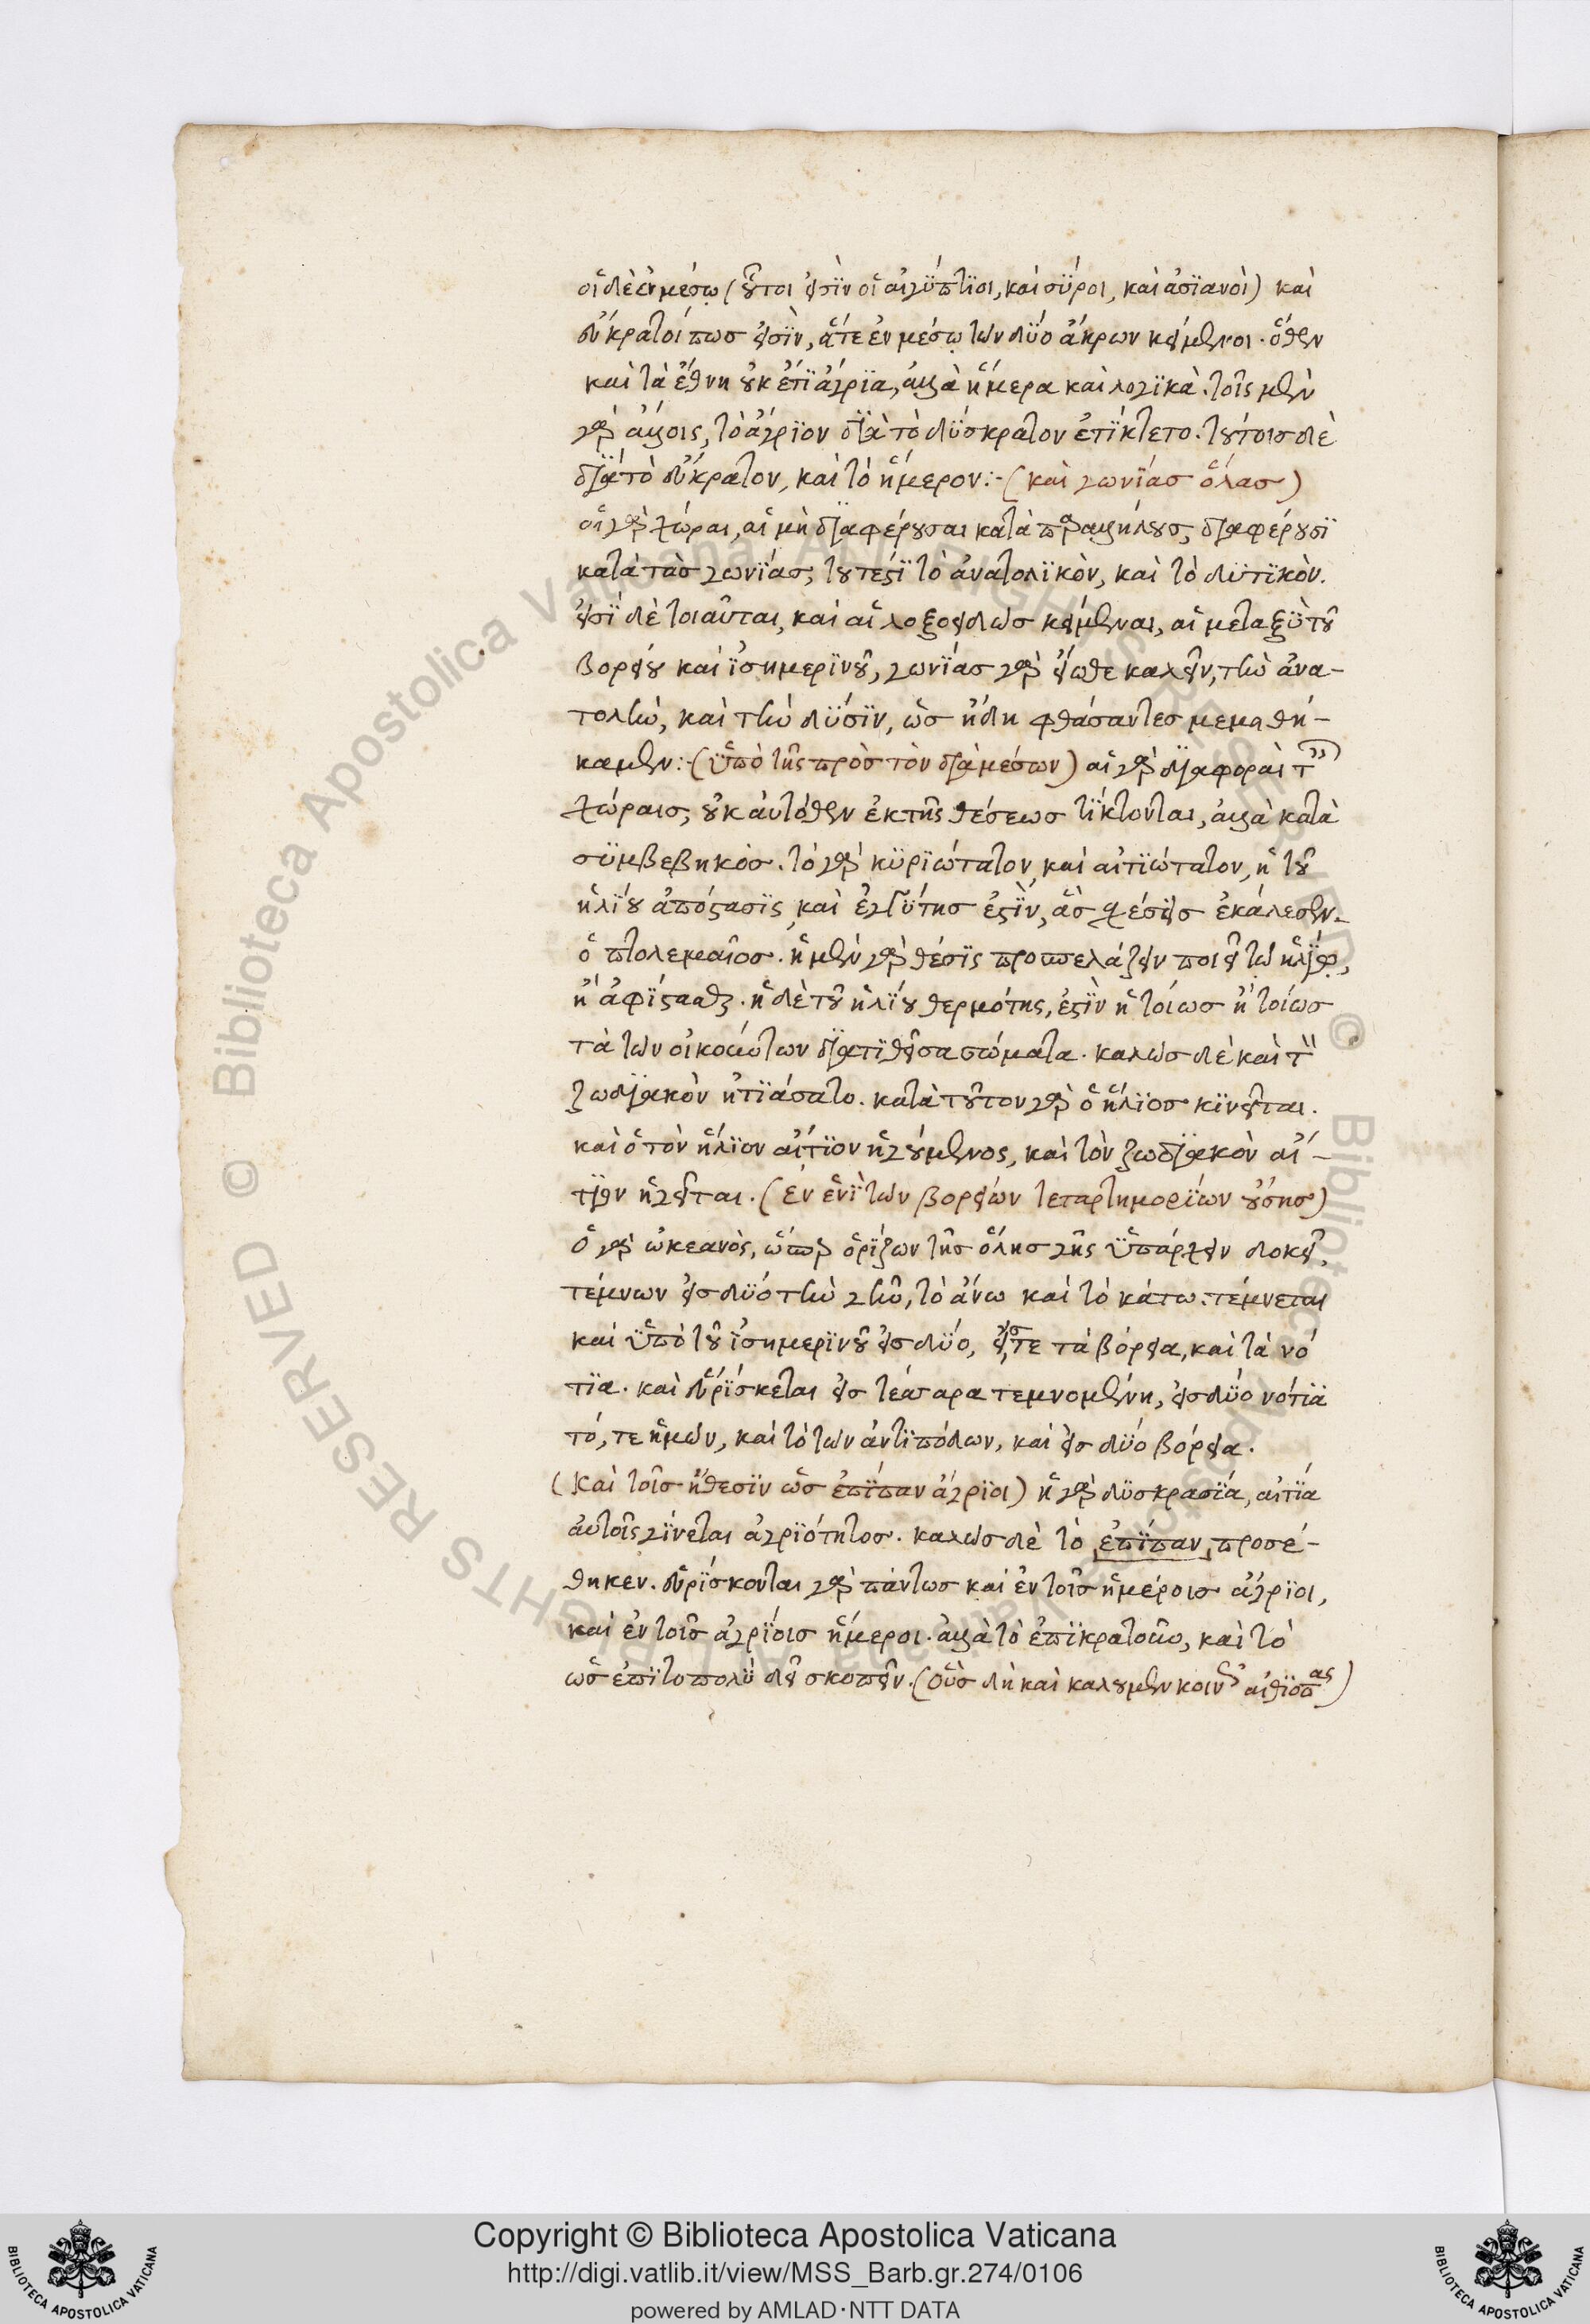 οἱ δὲ ἐν μέσῳ (οὗτοι εἰσῒν οἱ αἰγΰπτϊοι, καὶ σΰροι, καὶ ἀσϊανοὶ) καὶ
εὔκρατοί πως εἰσῒν, ἅτε ἐν μέσῳ τῶν δΰο ἄκρων κείμενοι. ὅθεν
καὶ τὰ ἔθνη οὐκ ἔτϊ ἄγρϊα, ἀλλὰ ἥμερα καὶ λογϊκὰ. τοῖς μὲν
γὰρ ἄλλοις, τὸ ἄγρϊον δϊὰ τὸ δΰσκρατον ἐτΐκτετο. τούτοισ δὲ
δϊὰ τὸ εὔκρατον, καὶ τὸ ἥμερον:- (καὶ γωνΐασ ὅλασ)
αἱ γὰρ χώραι, αἱ μὴ δϊαφέρουσαι κατὰ παραλλήλουσ, δϊαφέρουσϊ
κατὰ τὰσ γωνΐασ, τουτέστϊ τὸ ἀνατολϊκὸν, καὶ τὸ δϋτϊκὸν.
εἰσῒ δὲ τοιαῦται, καὶ αἱ λοξοειδῶσ κείμεναι, αἱ μεταξῢ τοῦ
βορείου καὶ ἰσημερϊνοῦ, γωνΐασ γὰρ εἴωθε καλεῖν, τὴν ἀνα-
τολὴν, καὶ τὴν δΰσϊν, ὡσ ἤδη φθάσαντεσ μεμαθή-
καμεν:- (ὑπὸ τῆς πρὸσ τὸν δϊὰ μέσων) αἱ γὰρ δϊαφοραὶ ταῖς
χώραισ, οὐκ αὐτόθεν ἐκ τῆς θέσεωσ τΐκτονται, ἀλλὰ κατὰ
σϋμβεβηκὸσ. τὸ γὰρ κϋρϊώτατον, καὶ αἰτϊώτατον, ἡ τοῦ
ἡλΐου ἀπόστασϊς, καὶ ἐγγΰτησ ἐστῒν, ἃσ σχέσεισ ἐκάλεσεν
ὁ πτολεμαῖοσ. ἡ μὲν γὰρ θέσϊς προπελάζειν ποιεῖ τῷ ἡλΐῳ,
ἢ ἀφΐστασθαι. ἡ δὲ τοῦ ἡλΐου θερμότης, ἐστῒν ἡ τοίωσ ἢ τοίωσ
τὰ τῶν οἰκούντων δϊατϊθεῖσα σώματα. καλῶσ δὲ καὶ τὸν
ζωδϊακὸν ᾐτϊάσατο. κατὰ τοῦτον γὰρ ὁ ἥλϊοσ κϊνεῖται.
καὶ ὁ τὸν ἥλϊον αἴτϊον ἡγούμενος, καὶ τὸν ζωδϊακὸν αἴ-
τϊον ἡγεῖται. (ἐν ἑνῒ τῶν βορείων τεταρτημορΐων οὔσησ)
ὁ γὰρ ὠκεανὸς, ὥσπερ ὁρΐζων τῆσ ὅλησ γῆς ὑπάρχειν δοκεῖ,
τέμνων εἰσ δΰο τὴν γῆν, τὸ ἄνω καὶ τὸ κάτω. τέμνεται
καὶ ὑπὸ τοῦ ἰσημερϊνοῦ εἰσ δΰο, εἴσ τε τὰ βόρεια, καὶ τὰ νό
τϊα. καὶ εὑρΐσκεται εἰσ τέσσαρα τεμνομένη, εἰσ δΰο νότϊα
τό, τε ἡμῶν, καὶ τὸ τῶν ἀντϊπόδων, καὶ εἰσ δΰο βόρεια.
(Καὶ τοῖσ ἤθεσϊν ὡσ ἐπΐπαν ἄγρϊοι) ἡ γὰρ δϋσκρασΐα, αἰτΐα
αὐτοῖς γΐνεται ἀγρϊότητοσ. καλῶσ δὲ τὸ ἐπΐπαν, προσέ-
θηκεν. εὑρΐσκονται γὰρ πάντωσ καὶ ἐν τοῖσ ἡμέροισ ἄγρϊοι,
καὶ ἐν τοῖσ ἀγρΐοισ ἥμεροι. ἀλλὰ τὸ ἐπϊκρατοῦν, καὶ τὸ
ὡσ ἐπῒ τὸ πολῢ δεῖ σκοπεῖν. (οὓσ δὴ καὶ καλοῦμεν κοινῶς αἰθΐοπας)
Copyright © Biblioteca Apostolica Vaticana
http://digi.vatlib.it/view/MSS_Barb.gr.274/0106
powered by AMLAD·NTT DATA
BIBLIOTECA APOSTOLICA VATICANA
BIBLIOTECA APOSTOLICA VATICANA